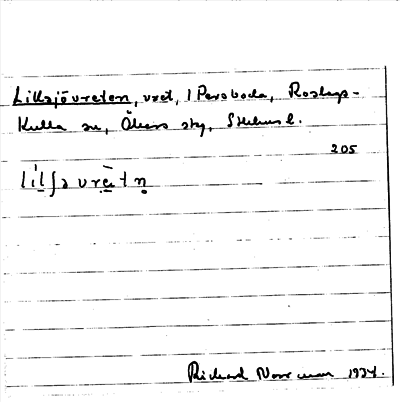 Lillsjövreten, vret, 1 Persboda, Roslags-
Kulla sn, Åkers skg, Sthlms l.
205
lilʃəvrètn̥
Richard Norrman 1934.